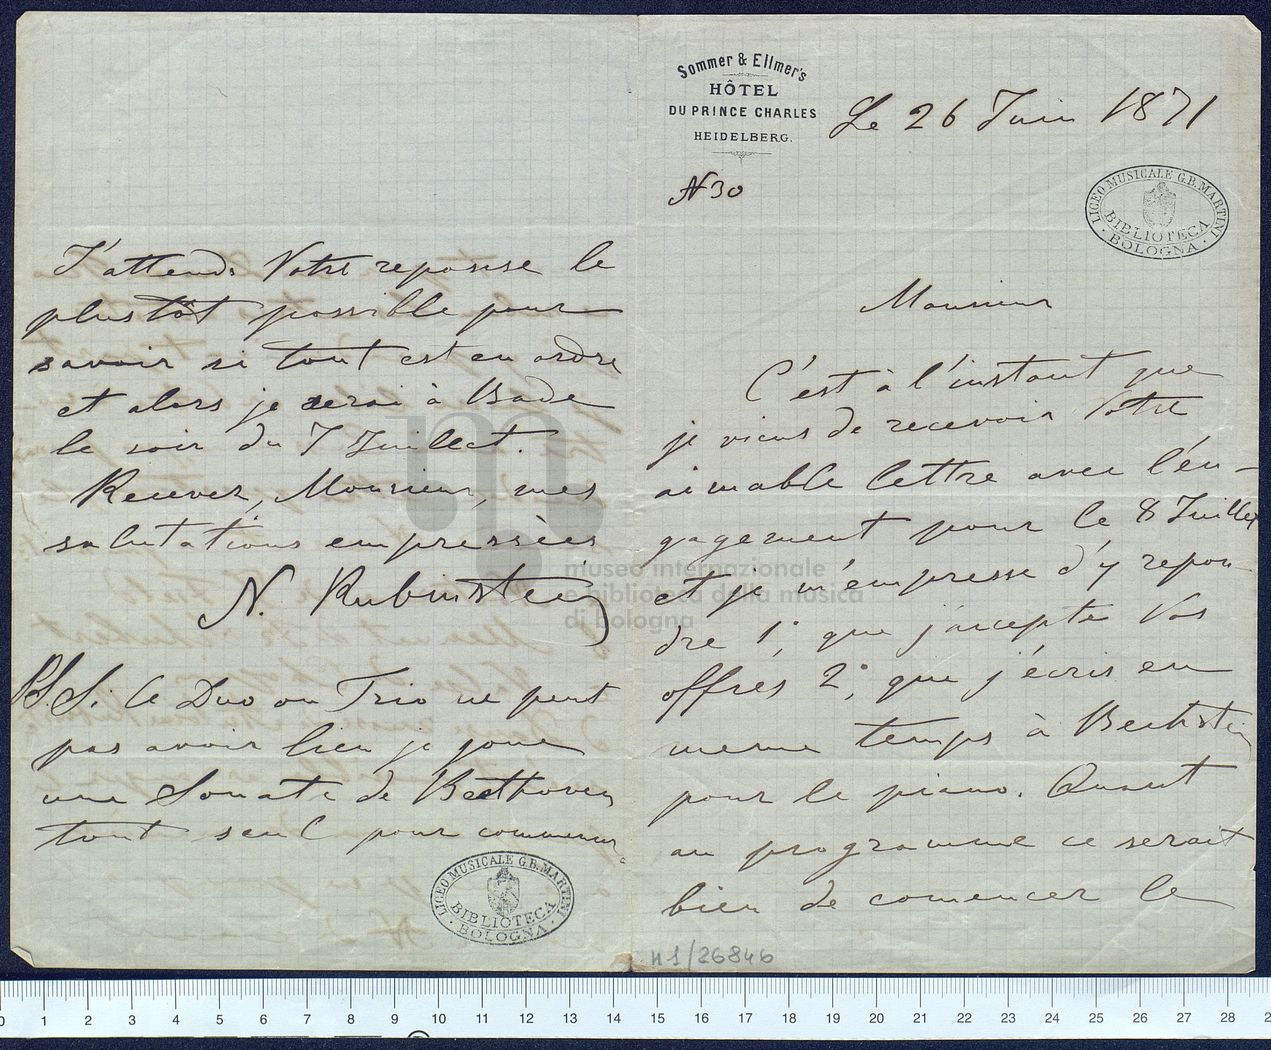 Sommer & Ellmer's
HÔTEL
DU PRINCE CHARLES
HEIDELBERG.
Le 26 Juin 1871
N 30
LICEO MUSICALE G.B. MARTINI
BIBLIOTECA
BOLOGNA
Monsieur
C'est à l'instant que
je viens de recevoir Votre
aimable lettre avec l'en-
gagement pour le 8 Juillet
et je m'empresse d'y repon-
dre 1°, que j'accepte Vos
offres 2°, que j'écris en
meme temps à Bechstein
pour le piano. Quant
au programme ce serait
bien de comencer le
n1/26846
J'attends Votre reponse le
plustôt possible pour
savoir si tout est en ordre
et alors je serai à Bade
le soir du 7 Juillet.
Recevez, Monsieur, mes
salutations empressèes
N. Rubinstein
P.S. Ce Duo ou Trio ne peut
pas avoir lieu je joue
une Sonate de Beethoven
tout seul pour commencer.
LICEO MUSICALE G.B. MARTINI
BIBLIOTECA
BOLOGNA
museo internazionale
e biblioteca della musica
di bologna
0 1 2 3 4 5 6 7 8 9 10 11 12 13 14 15 16 17 18 19 20 21 22 23 24 25 26 27 28